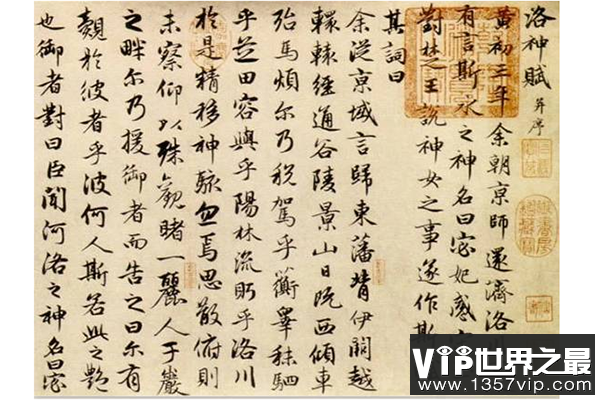 洛神賦 并序
黄初三年余朝京師還濟洛
有言斯水之神名曰宓妃感
對楚王說神女之事遂作斯
其詞曰
余從京域言歸東藩背伊闕越
轘轅經通谷陵景山日既西傾車
殆馬煩尔乃稅駕乎蘅皋秣駟
乎芝田容與乎陽林流眄乎洛川
於是精移神駭忽焉思散俯則
未察仰以殊觀睹一麗人于巖
之畔尔乃援御者而告之曰尔有
覿於彼者乎彼何人斯若此之艷
也御者對曰臣聞河洛之神名曰宓
VIP世界之最
www.1357vip.com